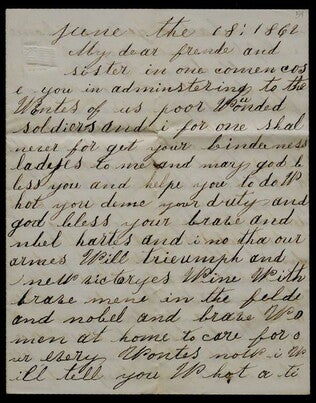 June the 18: 1862
My dear frende and
sister in one comencos
e you in adminstering to the
Wontes of us poor Wouded
soldiers and i for one shal
never for get your cindeness
ladeyes to me and mary god b
less you and helpe you to do W
hot you deme your duty and
god bless your brave and
nbel hartes and i no tha our
armes Will trieumph and
new victoryes Wine With
brave mene in the felde
and nobel and brave Wo
men at home to care for o
ur every Wontes noW i W
ill tell you W hot a ti